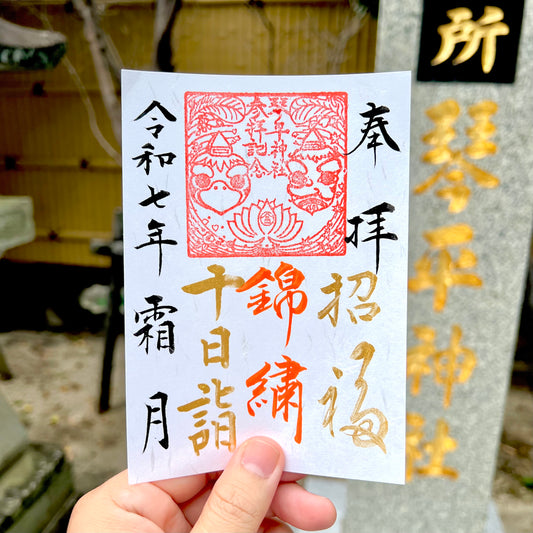 奉拝
琴平神社
参拝記念
招福
錦繍
千日詣
令和七年
霜月
所
琴平神社